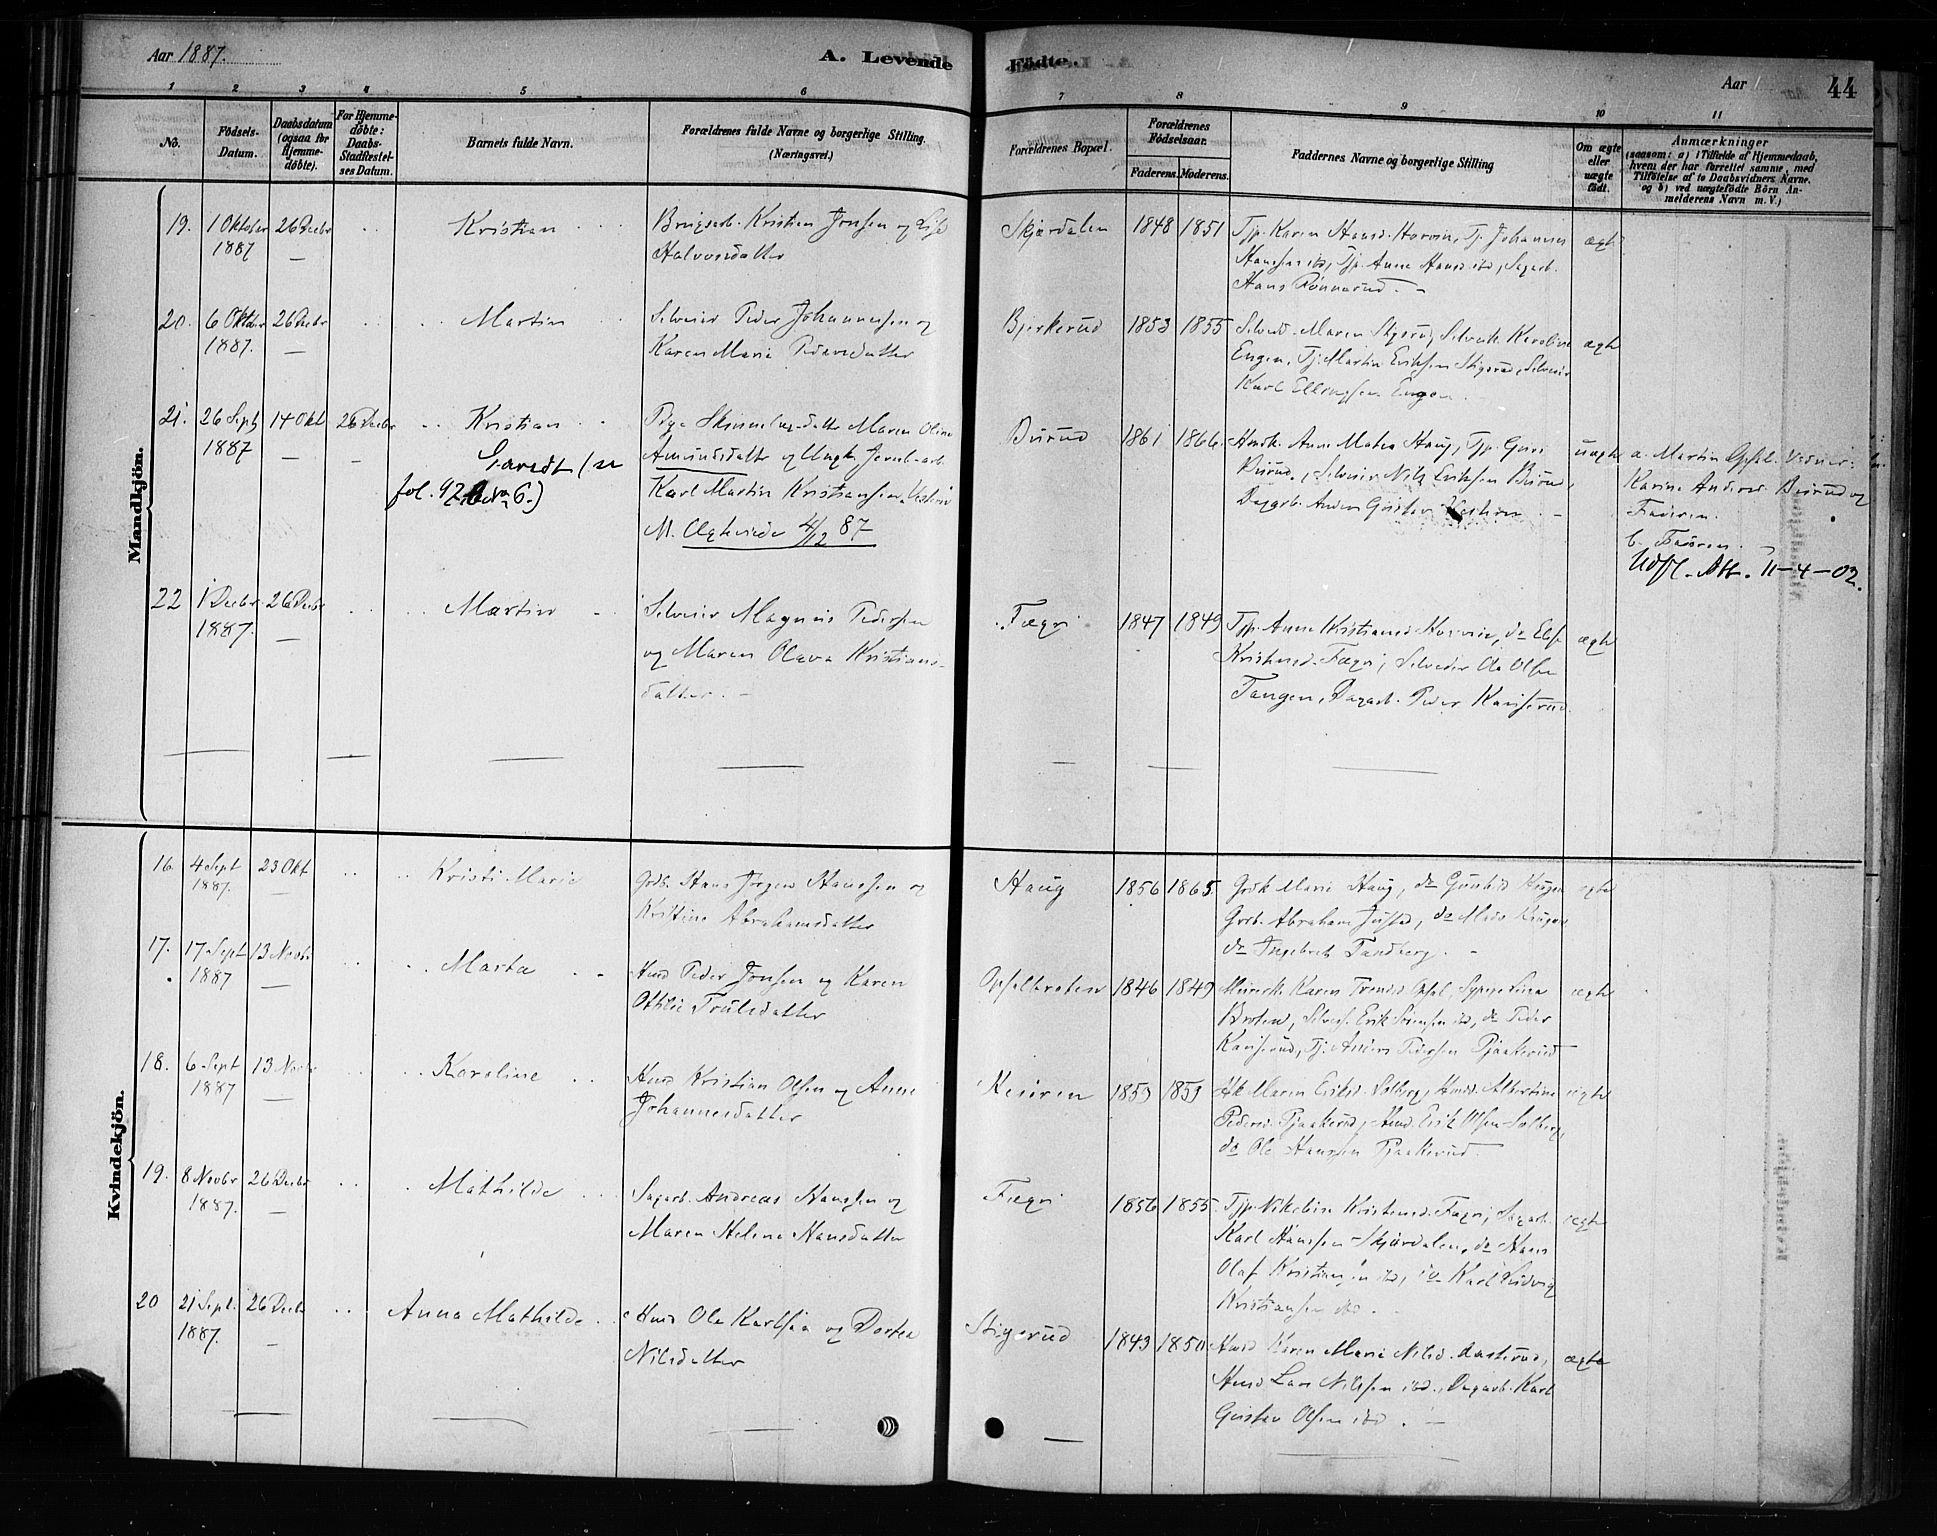 Aar 1887.
A. Levende Födte.
Aar 1
44
1 2 3 4 5 6 7 8 9 10 11
No.
Födsels-Datum.
Daabsdatum (ogsaa for Hjemmedöbte).
For Hjemmedöbte: Daabs-Stadfæstelses Datum.
Barnets fulde Navn.
Forældrenes fulde Navne og borgerlige Stilling. (Næringsvei.)
Forældrenes Bopæl.
Forældrenes Födselsaar.
Faderens. Moderens.
Faddernes Navne og borgerlige Stilling
Om ægte eller uægte födt.
Anmærkninger
(saasom: a) i Tilfælde af Hjemmedaab,
hvem der har forrettet samme, med
Tilföielse af to Daabsvidners Navne.
og b) ved uægtefödte Börn An-
melderens Navn m. V.)
Mandkjön.
19. 1 Oktober 1887 26 Decbr Kristian
Brugsarb. Kristian Jonsen og Lise
Halvorsdatter
Skjærdalen 1848 1851
Tjp. Karen Hansd. Horvin, Tj. Johannes
Hanssen ibd, Tjp. Anne Hansd. ibd, Sagarb.
Hans Rönnerud. ægte
20. 6 Oktober 1887. 26 Decbr Martin
Selveier Peder Johannessen og
Karen Marie Pedersdatter
Bjerkerud 1853 1855
Selvedt. Maren Stigerud, Selveik. Karoline
Engen, Tj. Martin Eriksen Stigerud, Selveier
Karl Ellingsen Engen. ægte
21. 26 Sept 1887 14 Okt 26 Decbr Kristian
Garedt (se
fol. 42 No 6.)
Pige Skinnelagsdatter Maren Oline
Amundsdatter og Ungk. Jernb.arb.
Karl Martin Kristiansen Vestern
M. Ægteviede 4/12 87
Burud 1861 1866.
Husk. Anne Matea Haug, Tjp. Guri
Burud, Selveier Nils Eriksen Burud,
Dagarb. Anders Gustav uægte
a. Martin Opsal. Vidner:
Karine Andersd. Burud og
Faderen.
b. Faderen.
Udst. Att. 11-4-02.
22 1 Decbr 1887. 26 Decbr Martin
Selveier Magnus Pedersen
og Maren Olava Kristians-
datter.
Fægri 1847 1849
Tjp. Anne Kristiansd. Horvin, do Else
Kristensd. Fægri, Selveier Ole Olsen
Tangen, Dagarb. Peder Kanserud. ægte
Kvindekjön.
16. 4 Sept 1887. 23 Okt Kristi Marie
Grdb. Hans Jörgen Hanssen og
Kristine Abrahamsdatter
Haug 1856 1865.
Grdk. Marie Haug, do Gunhild Haugen
Grdb. Abraham, do Mads Haugen
do Ingebret Tandberg. ægte
17. 17 Sept 1887 13 Novbr Marta
Husm Peder Jonsen og Karen
Othilie Trulsdatter
Opsalbraten 1846 1849
Karen Trondsd. Opsal, Sypige Lina
Braten, Selveier Erik Sörensen ibd, do Peder
Kanserud, Tj. Anders Pedersen Pjaakerud ægte
18. 6 Sept 1887 13 Novbr Karoline
Husm Kristian Olsen og Anne
Johannesdatter
1853 1853
Hk Maren Eriksd. Solberg, Husmd. Albertine
Pedersd. Pjaakerud, Husm. Erik Olsen Solberg,
do Ole Hanssen Pjaakerud. ægte
19. 8 Novbr 1887. 26 Decbr Mathilde
Sagarb. Andreas Hanssen og
Maren Helene Hansdatter
Fægri 1856 1855.
Tjp. Nikoline Kristensd. Fægri, Sagarb.
Karl Hanssen Skjærdalen, do Hans
Olaf Kristiansen ibd, do Karl Ludvig
Kristiansen ibd. ægte
20 21 Sept. 1887. 26 Decbr Anna Mathilde
Husm Ole Karlsen og Dortea
Nilsdatter
Stigerud 1843 1850
Husd. Karen Marie Nilsd. Aasterud,
Husm. Lars Nilssen ibd., Dagarb. Karl
Gustav Olsen ibd. ægte